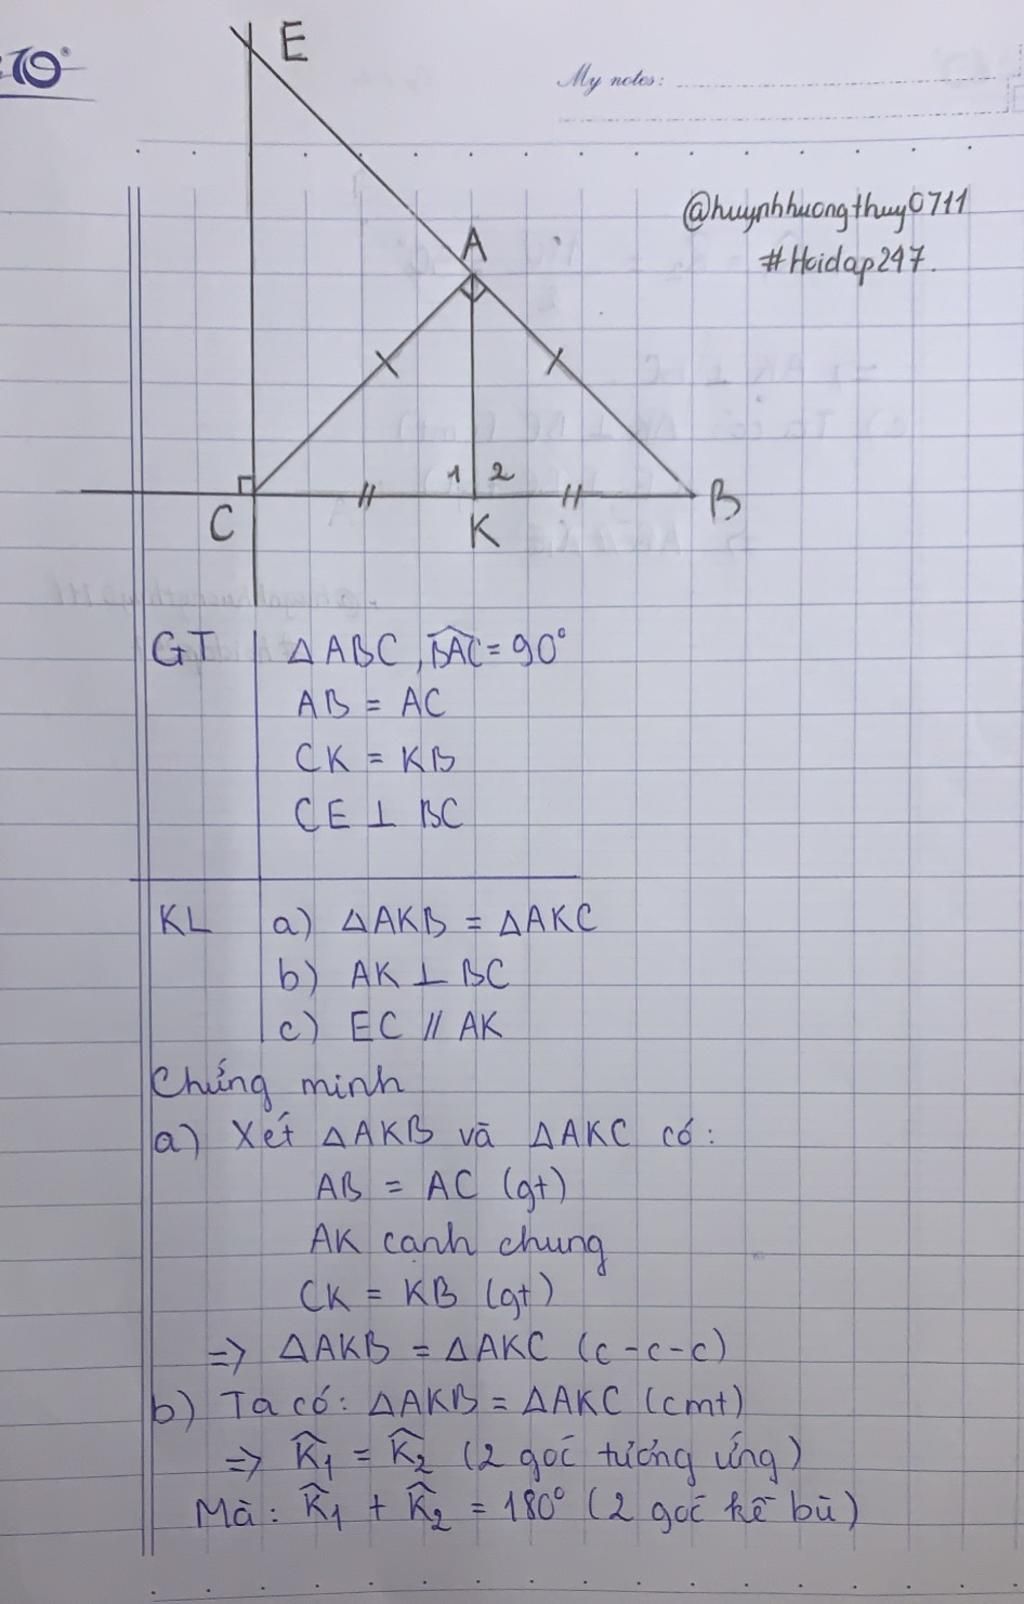 :10°
E
My notes:
@huynhhuongthuy0711
#Hoidap247.
A
1 2
C K B
GT ΔABC, B̂AC = 90°
AB = AC
CK = KB
CE ⊥ BC
KL a) ΔAKB = ΔAKC
b) AK ⊥ BC
c) EC // AK
Chứng minh
a) Xét ΔAKB và ΔAKC có:
AB = AC (gt)
AK cạnh chung
CK = KB (gt)
=> ΔAKB = ΔAKC (c-c-c)
b) Ta có: ΔAKB = ΔAKC (cmt)
=> K̂₁ = K̂₂ (2 góc tương ứng)
Mà: K̂₁ + K̂₂ = 180° (2 góc kề bù)